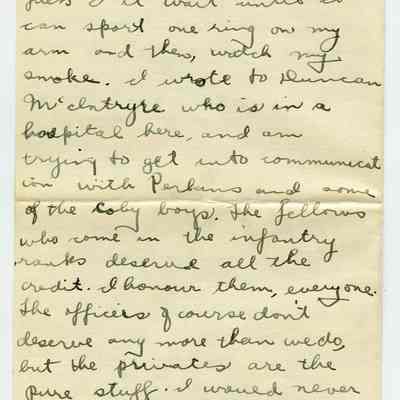 guess I'll wait until I
can sport one ring on my
arm and then, watch my
smoke. I wrote to Duncan
McIntryre who is in a
hospital here, and am
trying to get into communicat
ion with Perkins and some
of the Coby boys. The fellows
who come in the infantry
ranks deserve all the
credit. I honour them, everyone.
The officers of course don't
deserve any more than we do,
but the privates are the
pure stuff. I would never